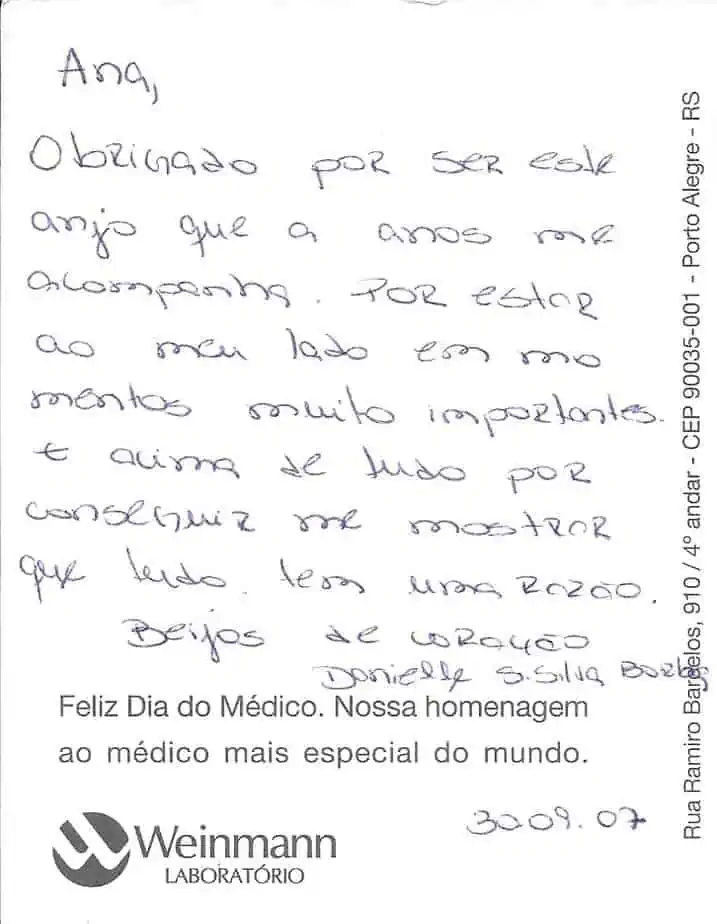 Ana,
Obrigado por ser este
anjo que a anos me
acompanha. Por estar
ao meu lado em mo
mentos muito importantes.
E acima de tudo por
conseguir me mostrar
que tudo tem uma razão.
Beijos de coração
Danielle S. Silva Borbs
Feliz Dia do Médico. Nossa homenagem
ao médico mais especial do mundo.
30.09.07
Weinmann
LABORATÓRIO
Rua Ramiro Barcelos, 910 / 4º andar - CEP 90035-001 - Porto Alegre - RS